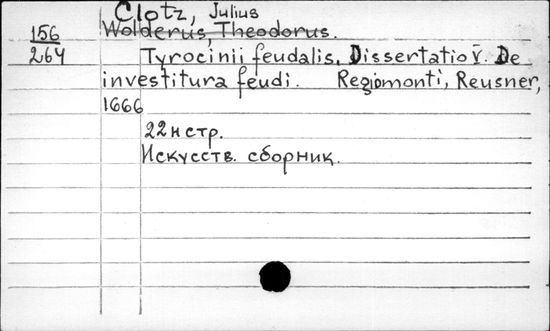 Clotz, Julius
Wolderus, Theodorus.
156
264
Tyrocinii feudalis, Dissertatio V. De
investitura feudi. Regiomonti, Reusner,
1666
22 н стр.
Искусств. сборник.